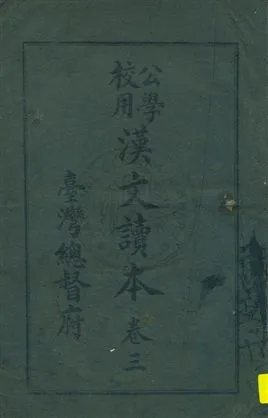 公學校用
漢文讀本 卷三
臺灣總督府